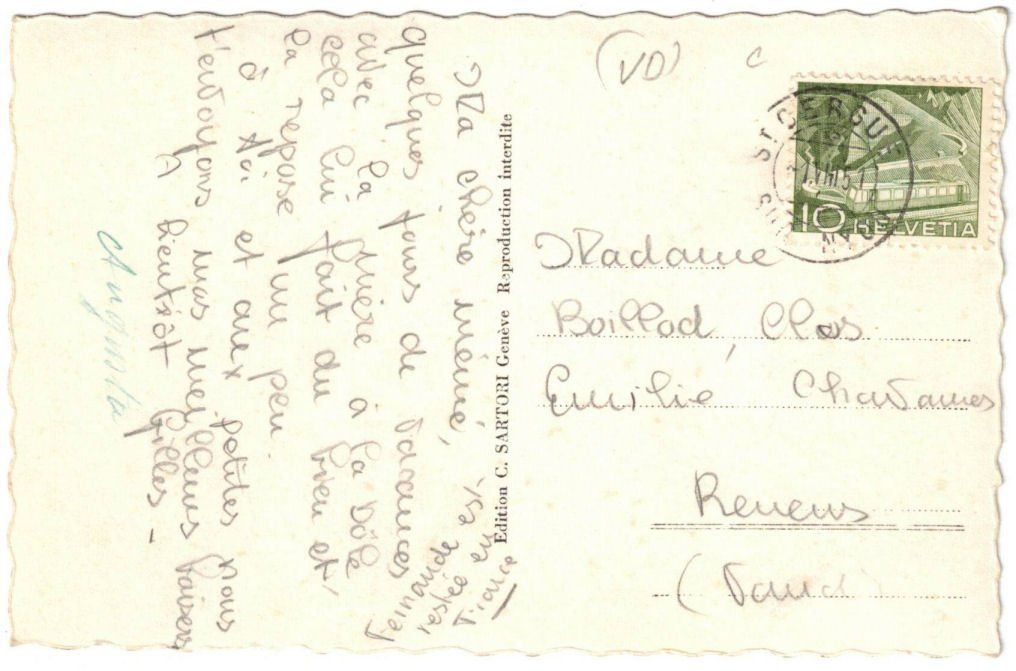 Ma chère mémé,
quelques jours de vacances
avec la mère à la Dôle
cela lui fait du bien et
la repose un peu.
à toi et aux petites nous
t'envoyons mes meilleurs baisers
A bientôt Gilles -
Fernande est
restée en
France
Augusta
Edition C. SARTORI Genève Reproduction interdite
(VD)
c
ST CERGUE
10 HELVETIA
Madame
Boillod, Clos
Emilie Chavannes
Renens
(Vaud)